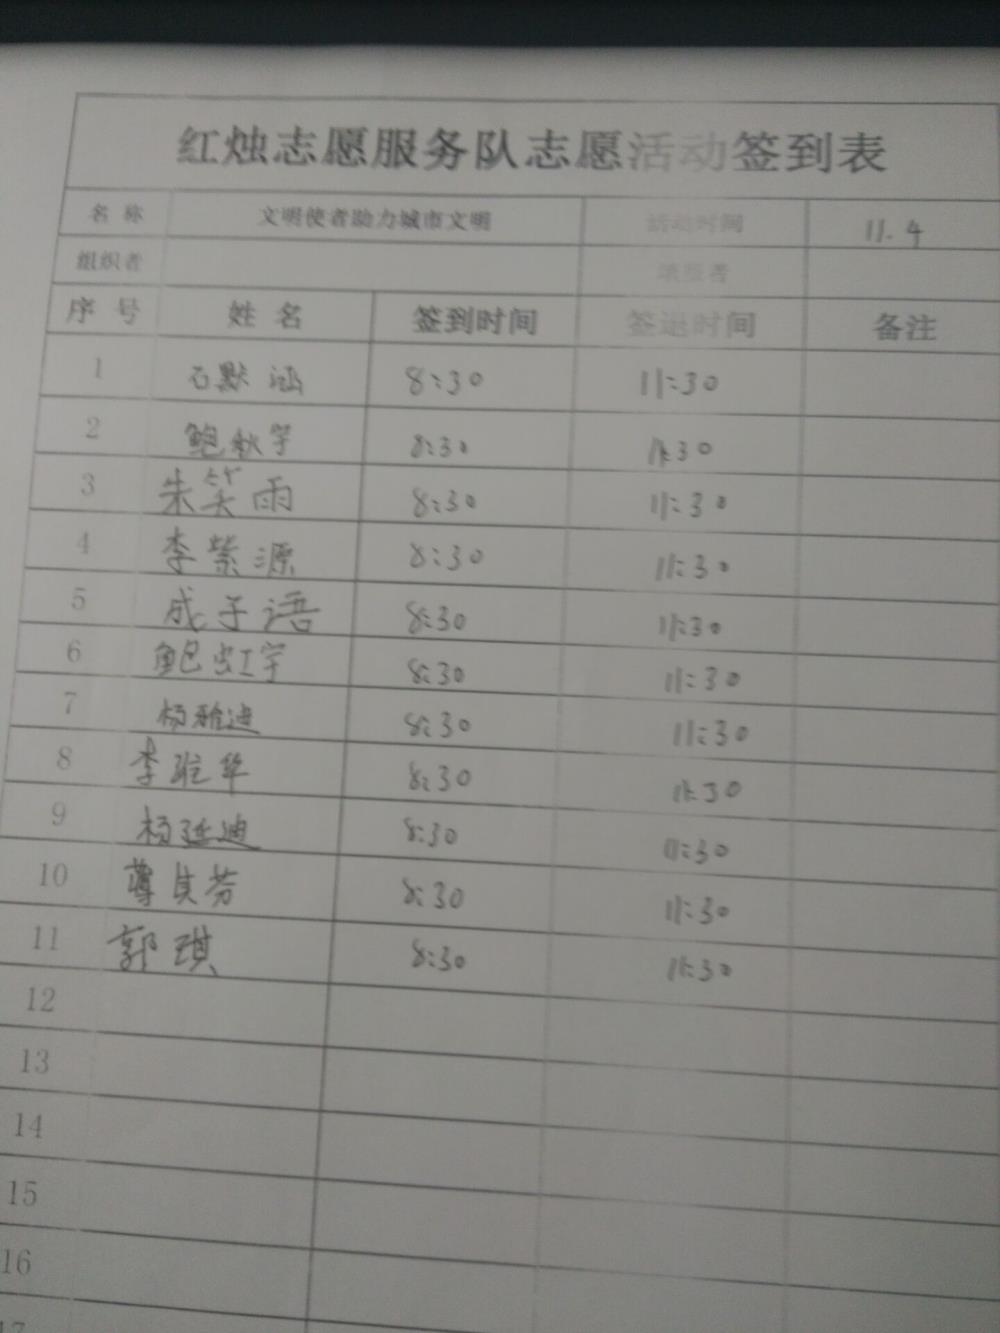 红烛志愿服务队志愿活动签到表
名 称 文明使者助力城市文明 活动时间 11.4
组织者 填报者
序 号 姓 名 签到时间 签退时间 备注
1 石默涵 8:30 11:30
2 鲍秋宇 8:30 11:30
3 朱笑雨 8:30 11:30
4 李紫源 8:30 11:30
5 成子语 8:30 11:30
6 鲍虹宇 8:30 11:30
7 杨雅迪 8:30 11:30
8 李 华 8:30 11:30
9 杨廷迪 8:30 11:30
10 芳 8:30 11:30
11 郭琪 8:30 11:30
12
13
14
15
16
17